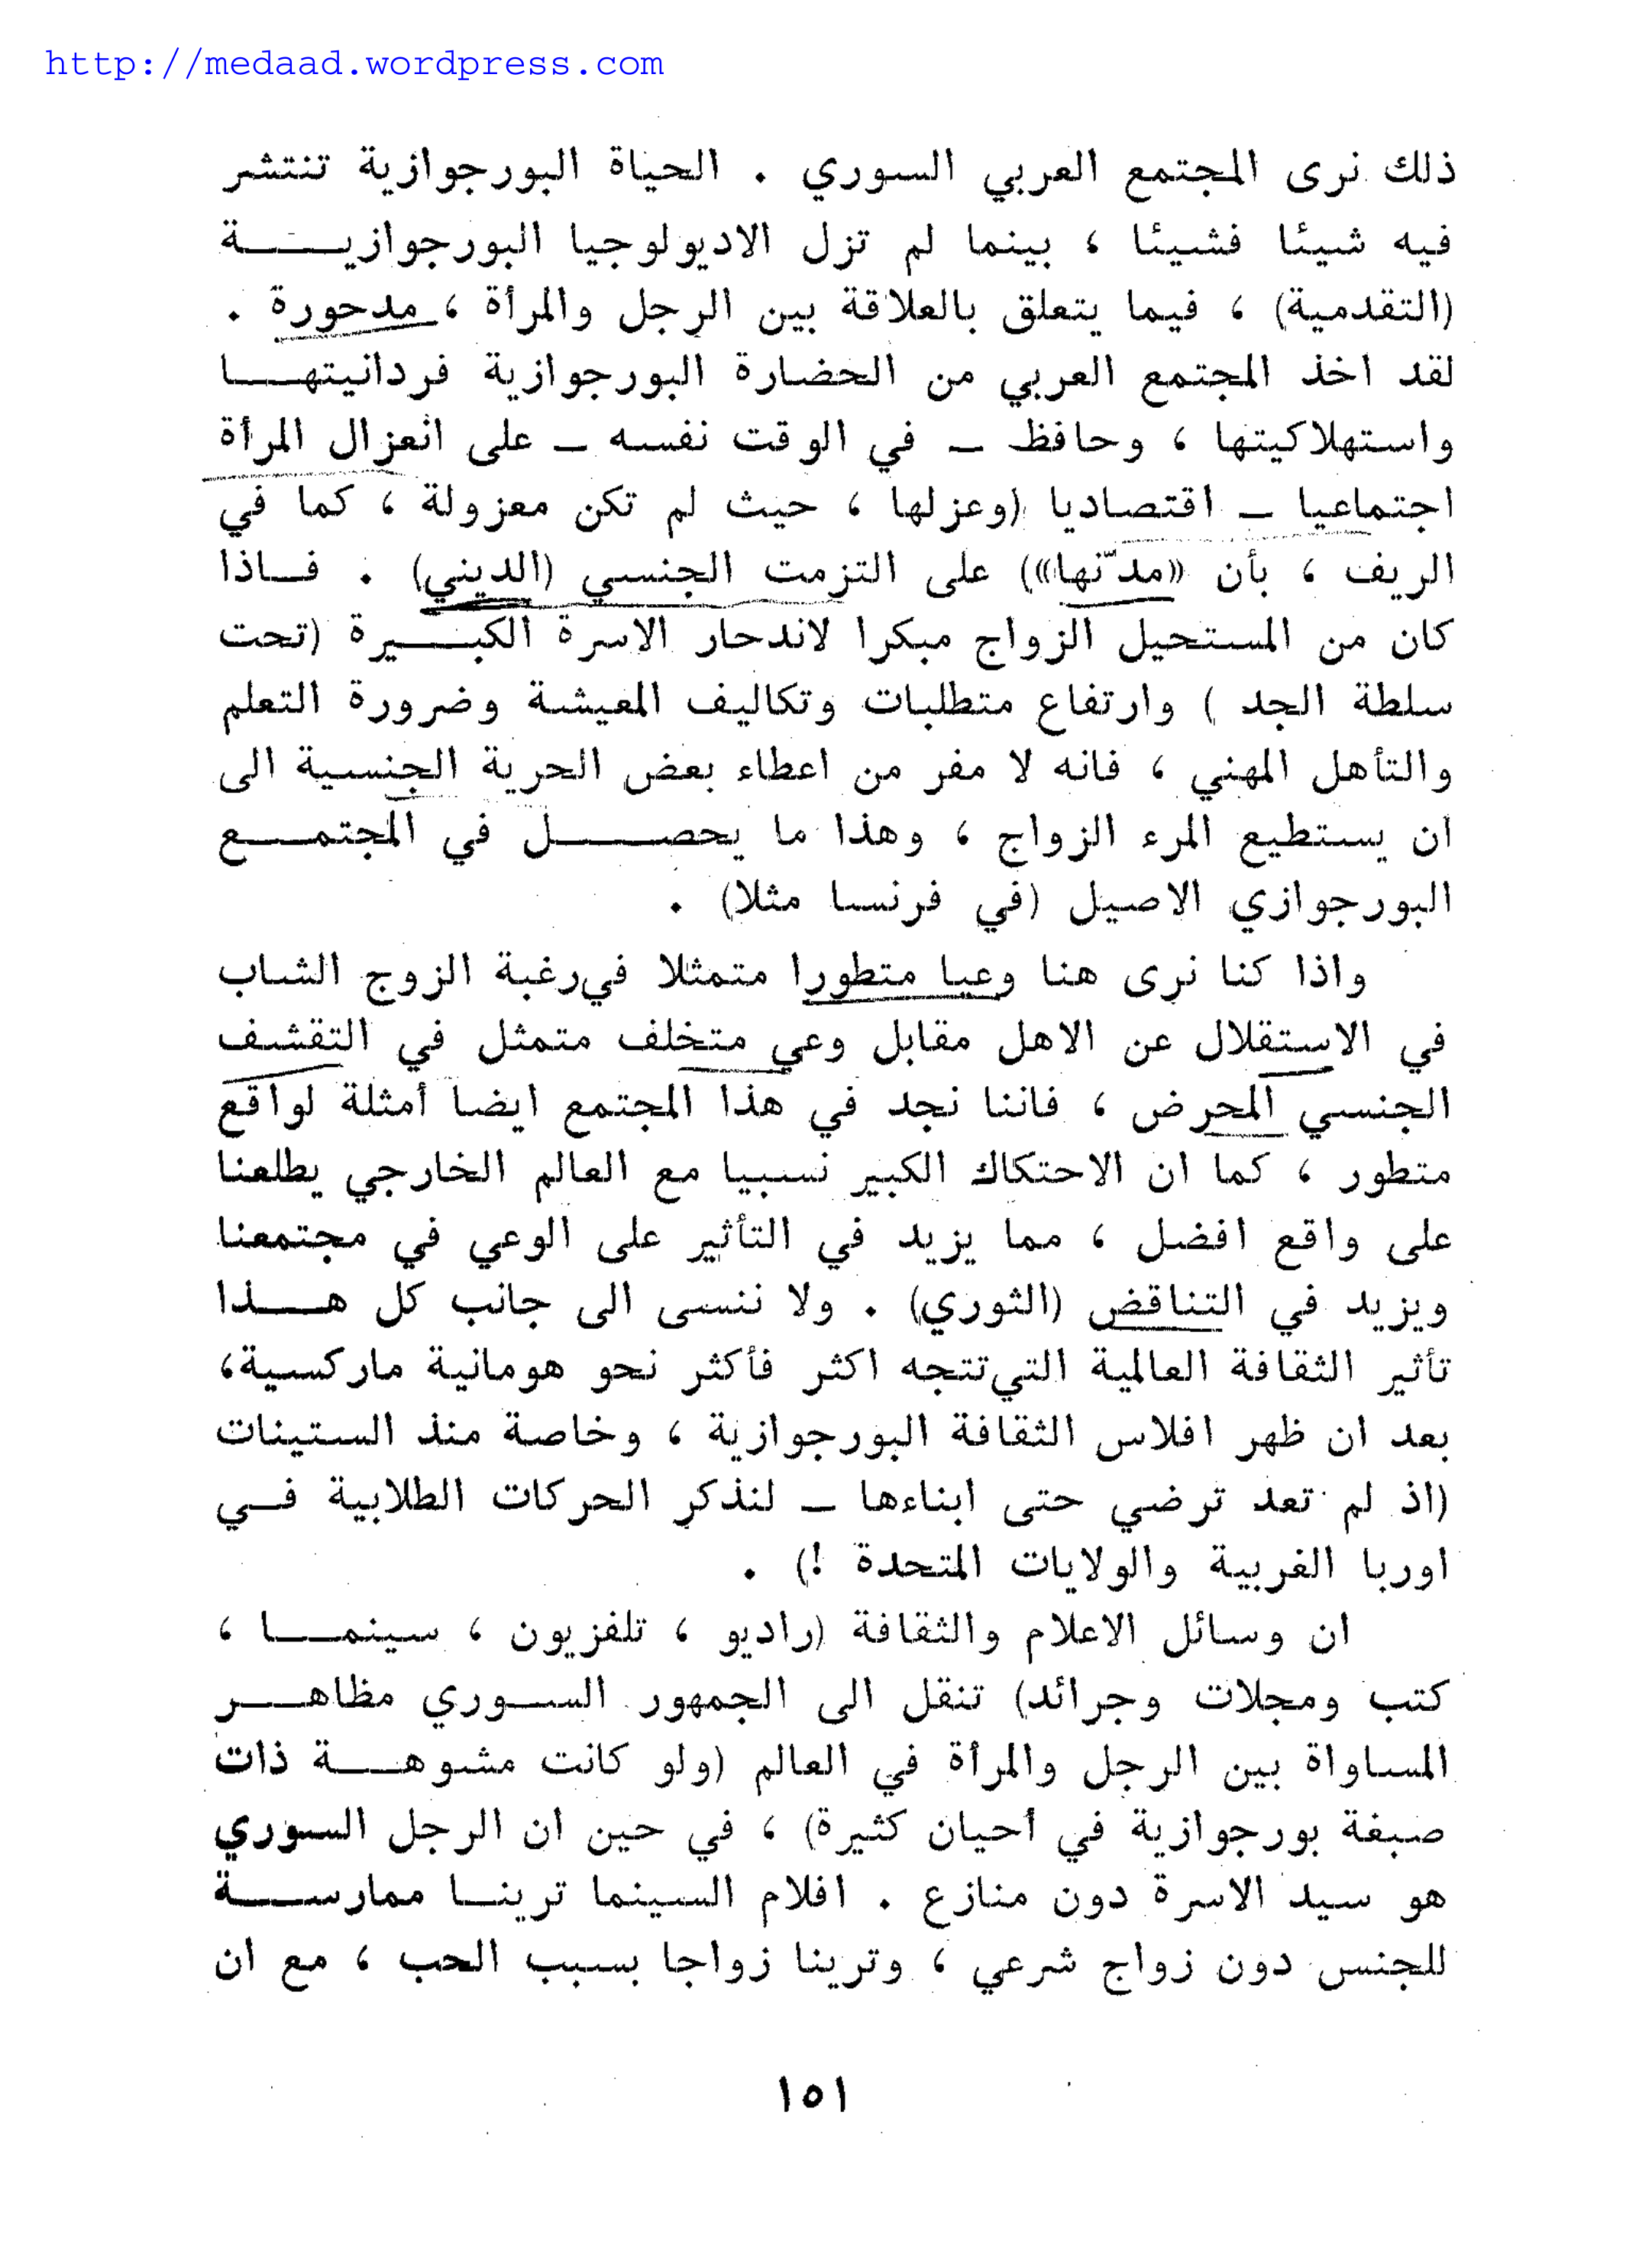 http://medaad.wordpress.com
ذلك نرى المجتمع العربي السوري . الحياة البورجوازية تنتشر
فيه شيئا فشيئا ، بينما لم تزل الاديولوجيا البورجوازيــــة
(التقدمية) ، فيما يتعلق بالعلاقة بين الرجل والمرأة ، مدحورة .
لقد اخذ المجتمع العربي من الحضارة البورجوازية فردانيتهــا
واستهلاكيتها ، وحافظ ــ في الوقت نفسه ــ على انعزال المرأة
اجتماعيا ــ اقتصاديا (وعزلها ، حيث لم تكن معزولة ، كما في
الريف ، بأن «مدّنها») على التزمت الجنسي (الديني) . فــاذا
كان من المستحيل الزواج مبكرا لاندحار الاسرة الكبـــيرة (تحت
سلطة الجد ) وارتفاع متطلبات وتكاليف المعيشة وضرورة التعلم
والتأهل المهني ، فانه لا مفر من اعطاء بعض الحرية الجنسية الى
ان يستطيع المرء الزواج ، وهذا ما يحصــــــل في المجتمـــع
البورجوازي الاصيل (في فرنسا مثلا) .
واذا كنا نرى هنا وعيا متطورا متمثلا في رغبة الزوج الشاب
في الاستقلال عن الاهل مقابل وعي متخلف متمثل في التقشف
الجنسي المحرض ، فاننا نجد في هذا المجتمع ايضا أمثلة لواقع
متطور ، كما ان الاحتكاك الكبير نسبيا مع العالم الخارجي يطلعنا
على واقع افضل ، مما يزيد في التأثير على الوعي في مجتمعنا
ويزيد في التناقض (الثوري) . ولا ننسى الى جانب كل هـــذا
تأثير الثقافة العالمية التي تتجه اكثر فأكثر نحو هومانية ماركسية،
بعد ان ظهر افلاس الثقافة البورجوازية ، وخاصة منذ الستينات
(اذ لم تعد ترضي حتى ابناءها ــ لنذكر الحركات الطلابية فــي
اوربا الغربية والولايات المتحدة !) .
ان وسائل الاعلام والثقافة (راديو ، تلفزيون ، سينمـــا ،
كتب ومجلات وجرائد) تنقل الى الجمهور الســوري مظاهـــر
المساواة بين الرجل والمرأة في العالم (ولو كانت مشوهـــة ذات
صبغة بورجوازية في أحيان كثيرة) ، في حين ان الرجل السوري
هو سيد الاسرة دون منازع . افلام السينما ترينــا ممارســـة
للجنس دون زواج شرعي ، وترينا زواجا بسبب الحب ، مع ان
١٥١